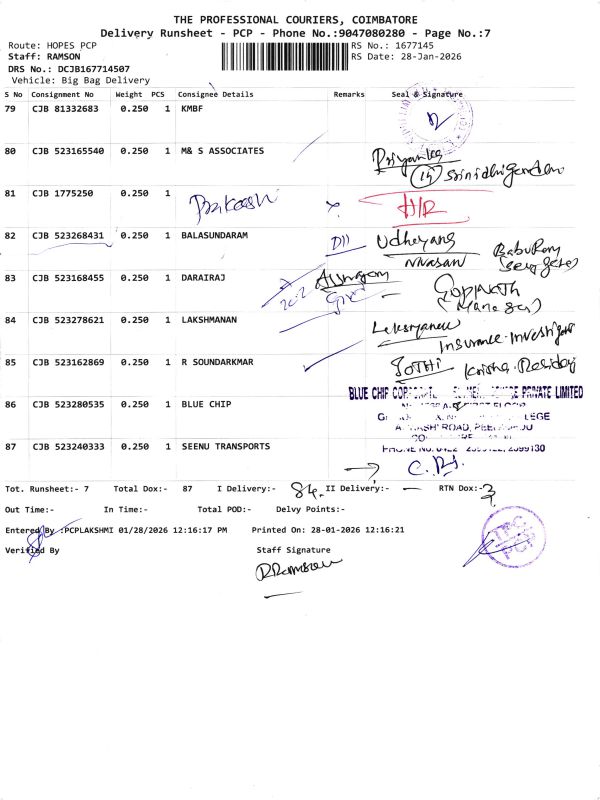 THE PROFESSIONAL COURIERS, COIMBATORE
Delivery Runsheet - PCP - Phone No.:9047080280 - Page No.:7
Route: HOPES PCP
RS No.: 1677145
Staff: RAMSON
RS Date: 28-Jan-2026
DRS No.: DCJB167714507
Vehicle: Big Bag Delivery
S No Consignment No Weight PCS Consignee Details Remarks Seal & Signature
79 CJB 81332683 0.250 1 KMBF
80 CJB 523165540 0.250 1 M& S ASSOCIATES Priyanka
81 CJB 1775250 0.250 1 Prakash
82 CJB 523268431 0.250 1 BALASUNDARAM
83 CJB 523168455 0.250 1 DARAIRAJ
84 CJB 523278621 0.250 1 LAKSHMANAN
Insurance
85 CJB 523162869 0.250 1 R SOUNDARKMAR
BLUE CHIP PRIVATE LIMITED
86 CJB 523280535 0.250 1 BLUE CHIP
87 CJB 523240333 0.250 1 SEENU TRANSPORTS
Tot. Runsheet:- 7 Total Dox:- 87 I Delivery:- 84 II Delivery:- — RTN Dox:- 3
Out Time:- In Time:- Total POD:- Delvy Points:-
Entered By :PCPLAKSHMI 01/28/2026 12:16:17 PM Printed On: 28-01-2026 12:16:21
Verified By Staff Signature